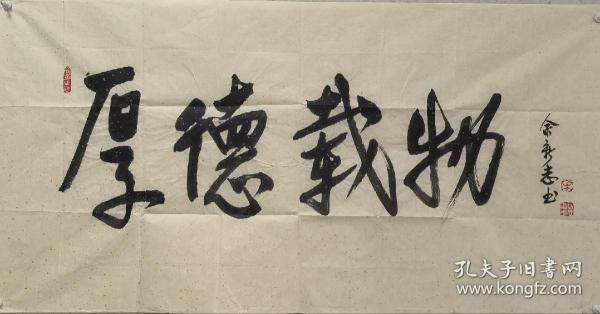 厚德载物
余新志书
孔夫子旧书网
www.kongfz.com